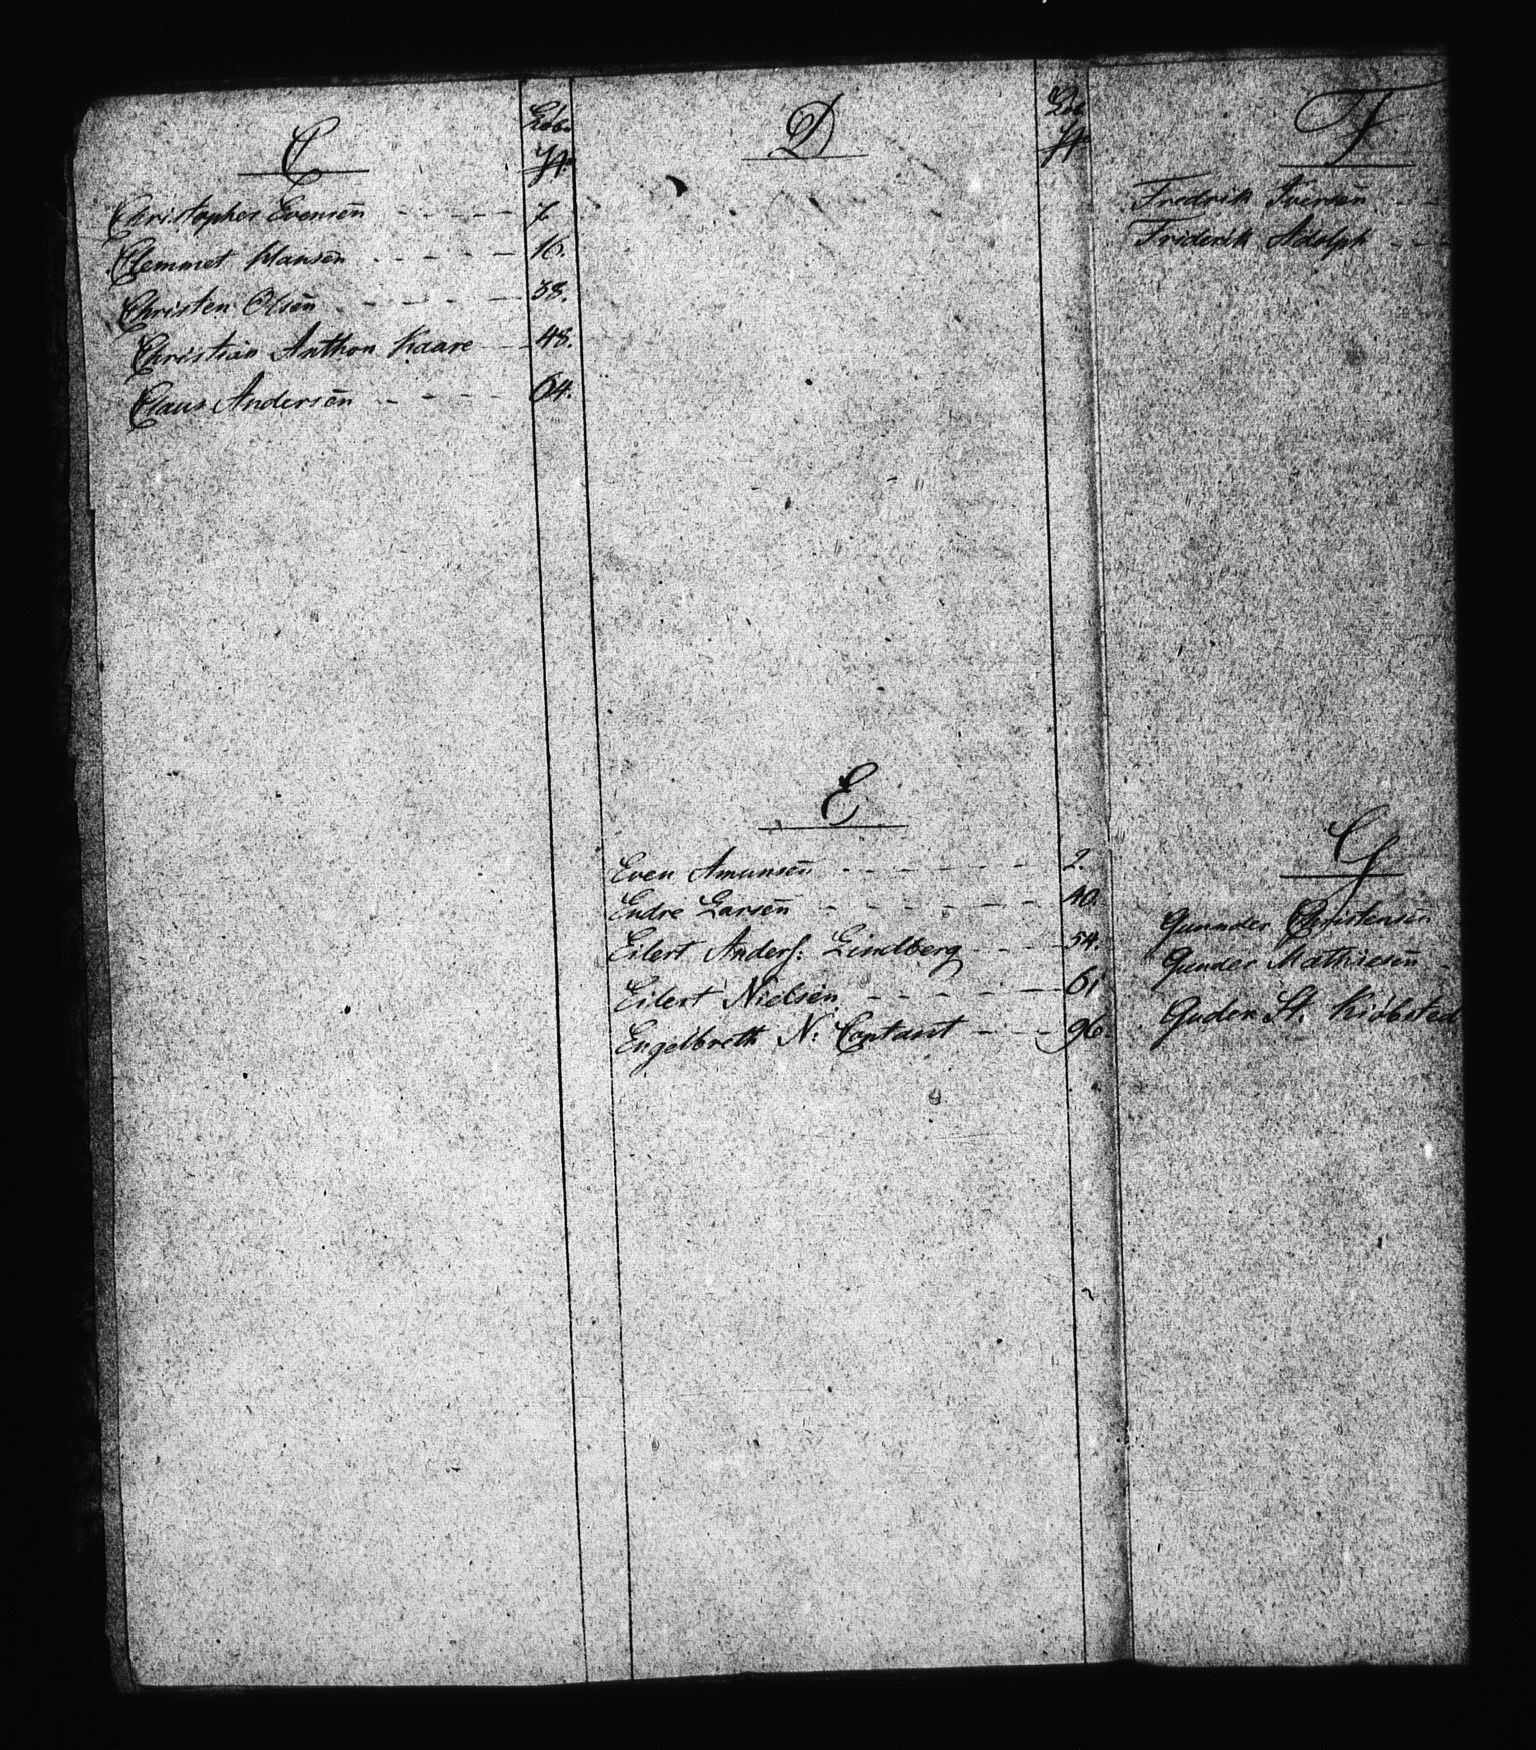 C
Løb.
No
Christopher Evensen̄ 7.
Clemmet Hansen̄ 16.
Christen Olsen̄ 38.
Christian Anthon Kaare 48.
Claus Andersen̄ 64.
D
Løb.
No
E
Even Amunsen̄ 2.
Endre Larsen̄ 40.
Eilert Anders: Lindberg 54.
Eilert Nielsen 61
Engelbreth N: Contant 96.
F
Fredrik Iversen̄
Friderik Adolph
G
Gunnder Christensen̄
Gunder Mathiesen̄
Guder St. Kiøbsted